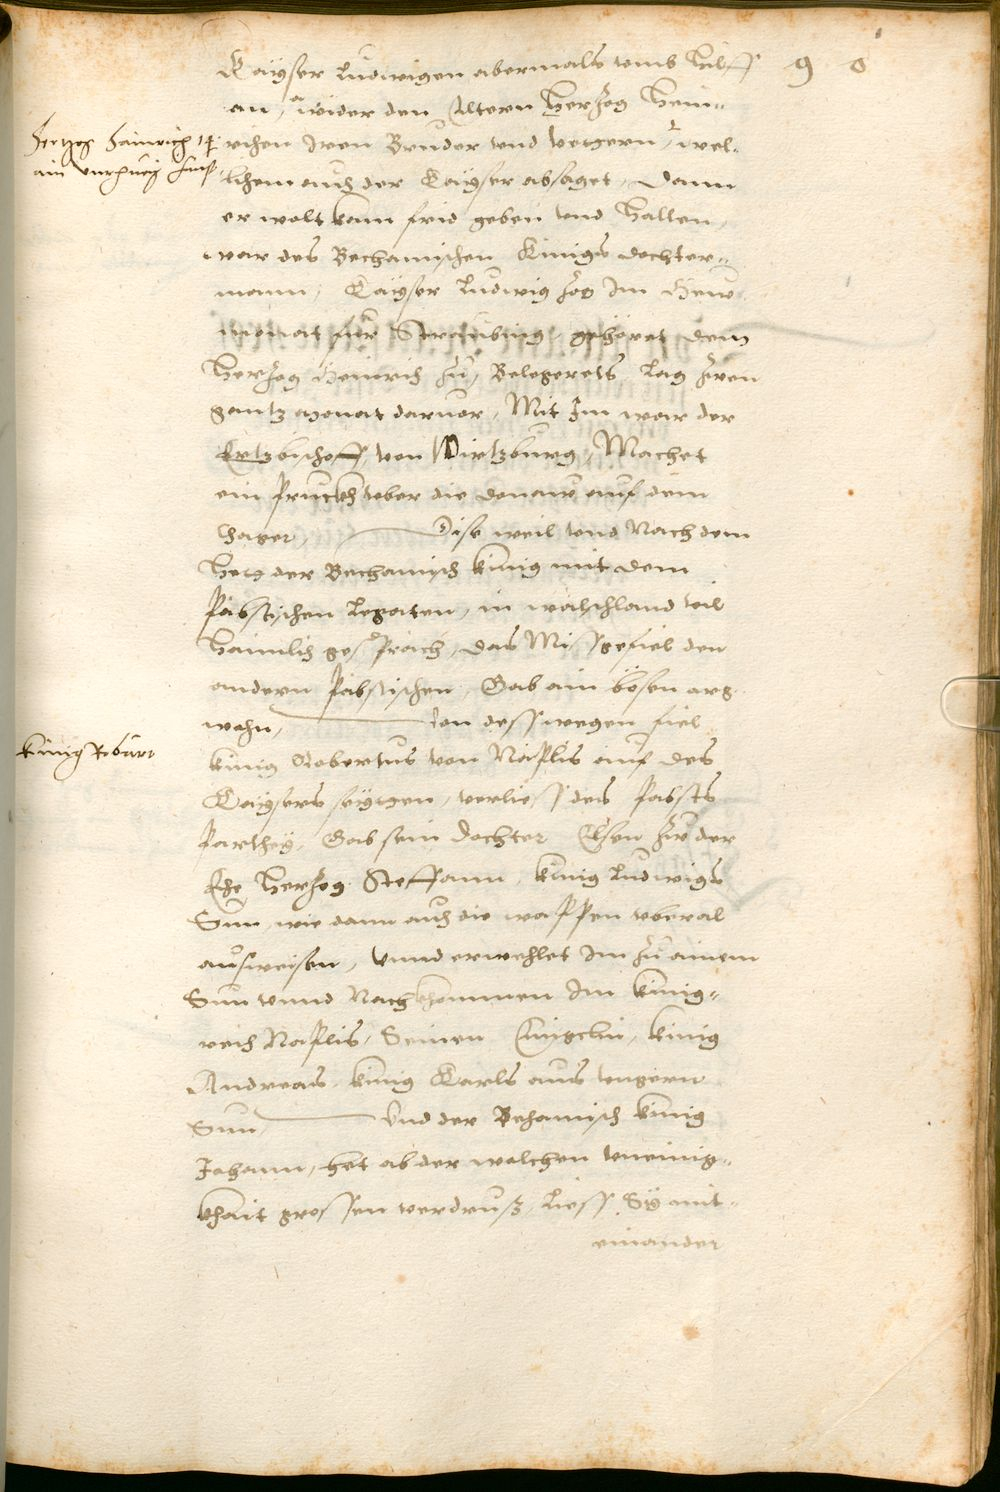 90
Kayser Ludwigen abermals umb hilff
an, wider den Eltern Hertzog Hein-
richen Iren Bruder und vettern, wel-
chem auch der Kayser absaget, Dann
er wolt kain frid geben und halten,
war des Bechamischen Künigs dochter-
mann, Kayser Ludwig zog Im Hew
monat für Straubing, gehöret dem
Hertzog Heinrich zu, Belegerets, Lag zwen
gantz monat darvor, Mit Im war der
Ertzbischoff von Wirtzburg, Machet
ein Pruckh uber die Donaw auf dem
Hager, Dise weil und Nachdem
Het der Bechamisch künig mit dem
Pabstischen Legaten, in walschland vil
haimlich gesprach, das Missgefiel den
andern Päbstischen, Gab ain bösen arg
wohn, Von desswegen fiel
künig Robertus von Naplis auf des
Kaysers seytten, verliess des Pabsts
Parthey, Gab sein dochter Elsen zu der
Ehe Hertzog Steffann, künig Ludwigs
Sun, wie dann auch die wappen uberal
ausweisen, unnd erwehlet Im zu ainem
Sun unnd Nachkhommen Im künig-
reich Naplis, Seinen Enigclin, künig
Andreas, künig Carls aus ungern
Sun, Und der Behamisch künig
Johann, het ab der walchen uneinig-
khait grossen verdruß, Liess Sy mit
einander
Hertzog Hainrich 14.
ain unrhueig
künig Robert